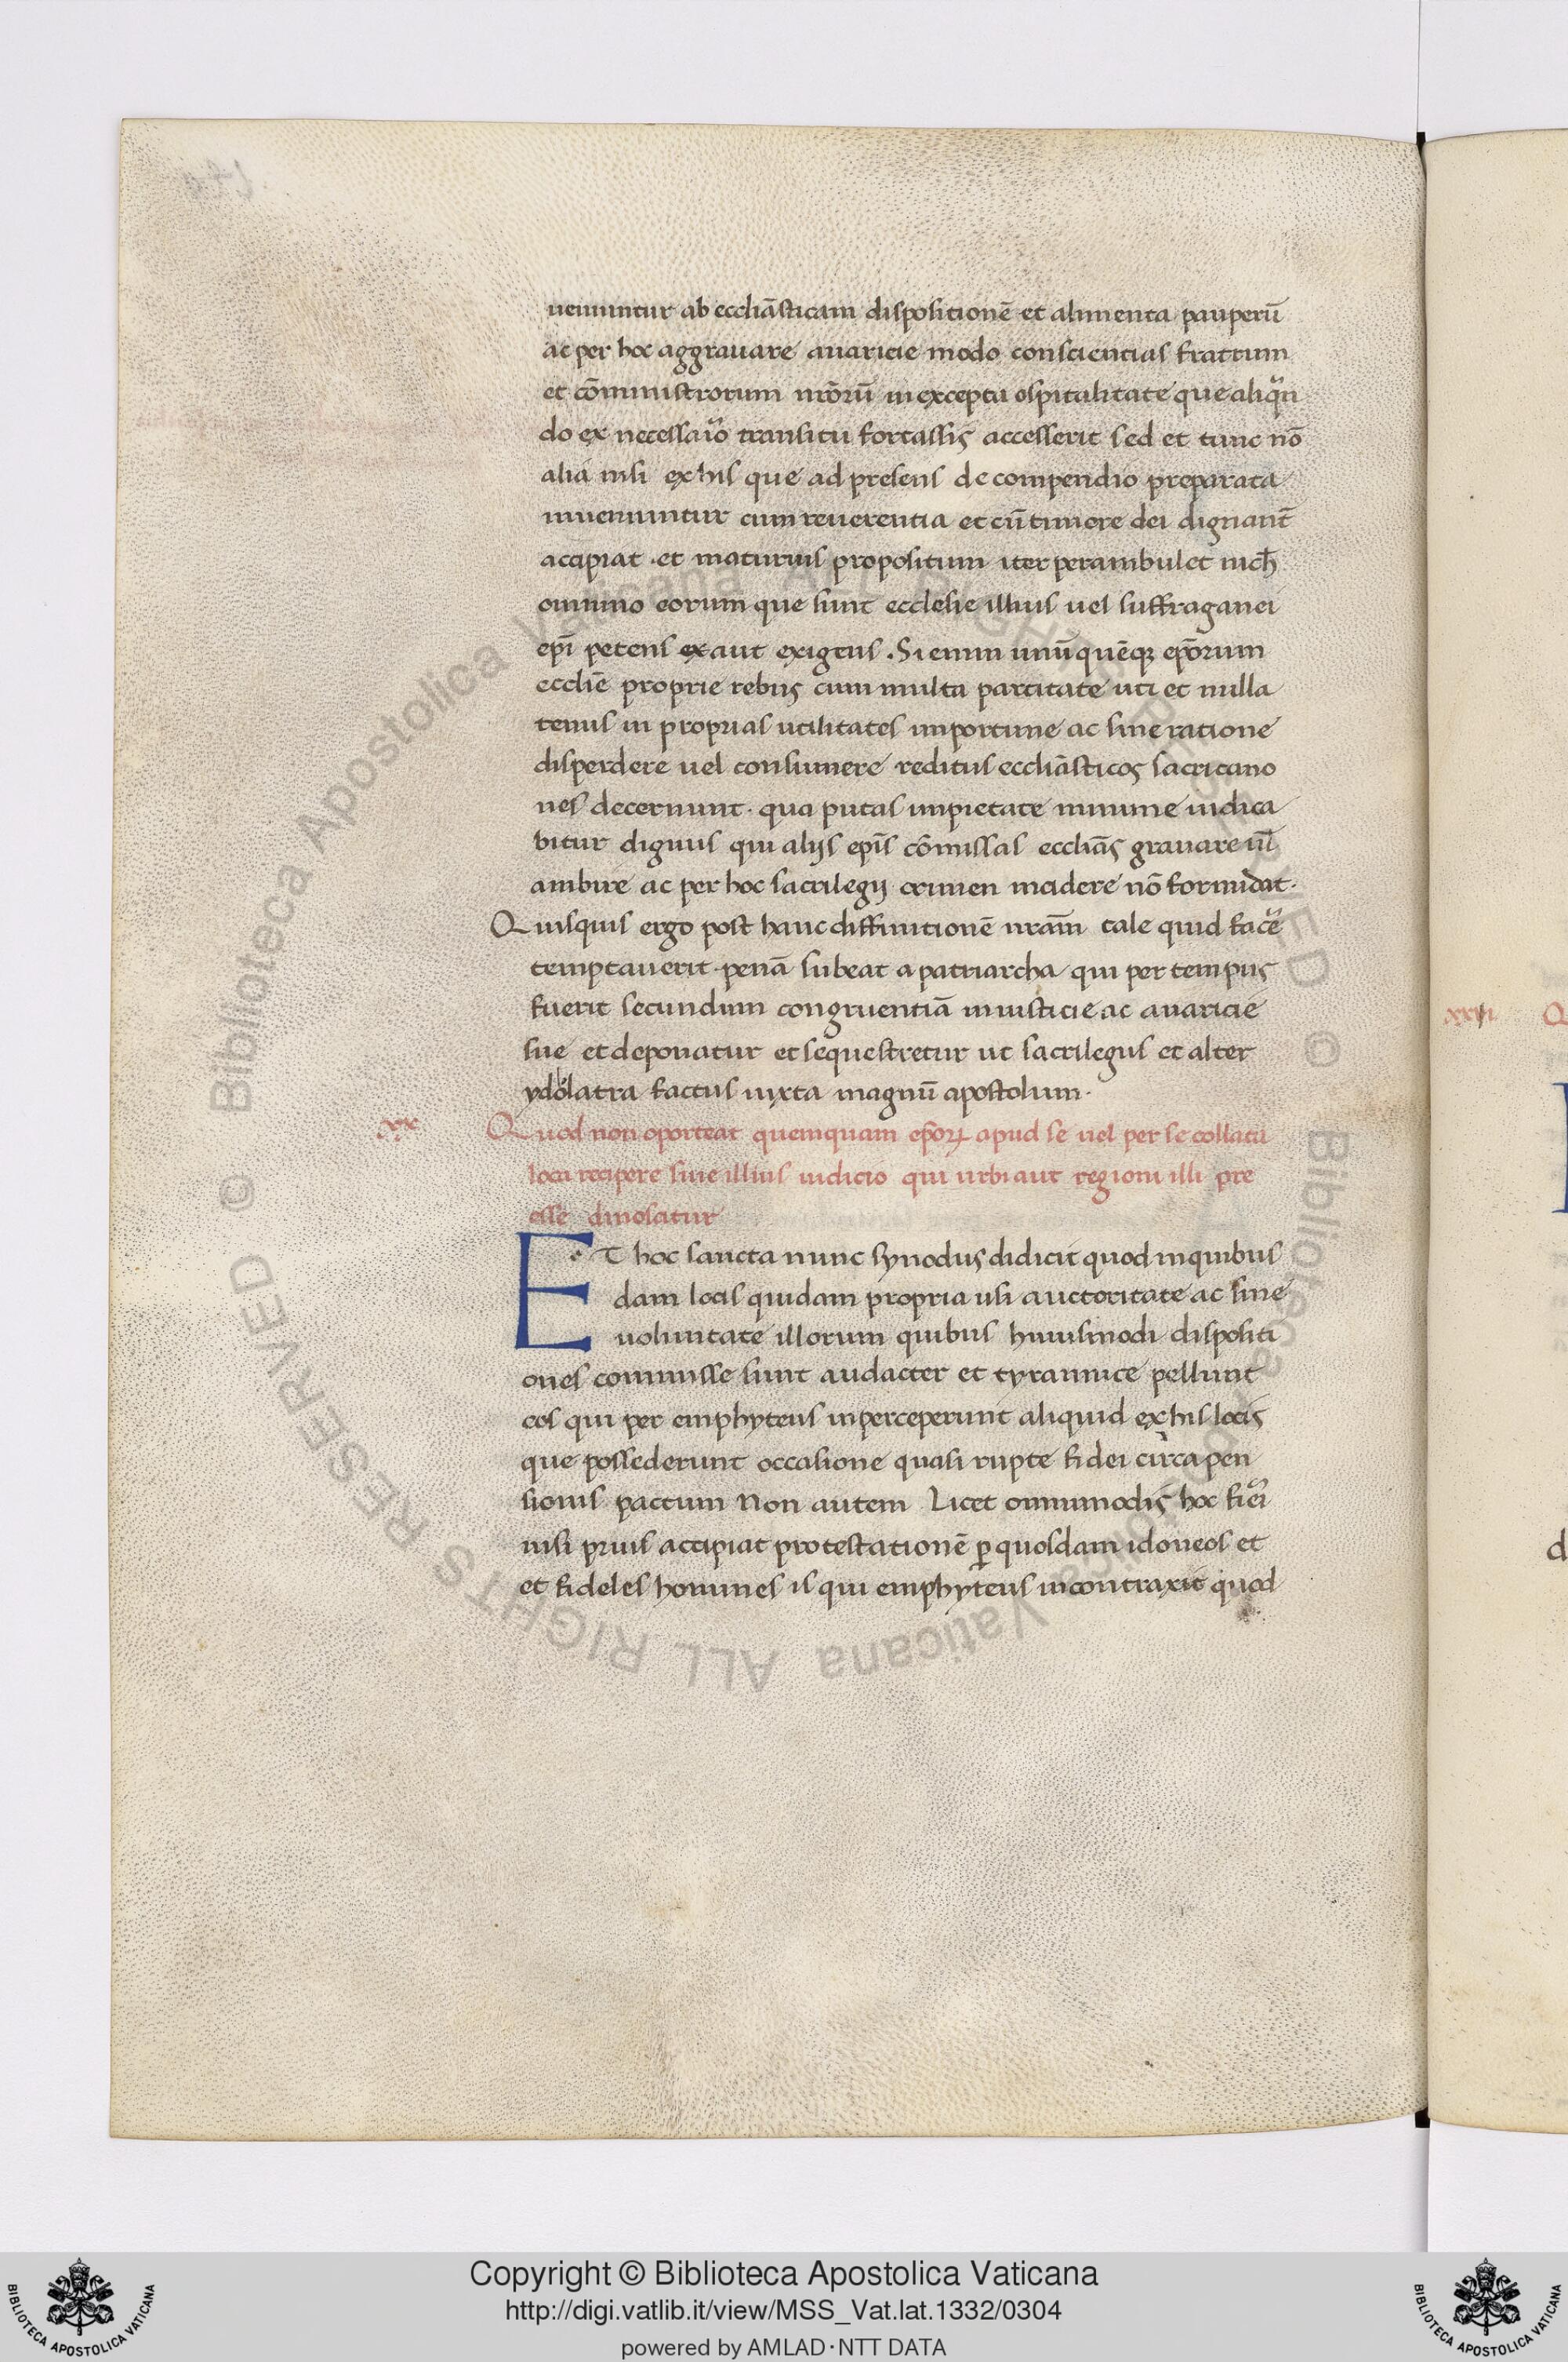 ueniuntur ab ecclīasticam dispositionē et alimenta pauperū
ac per hoc aggrauare auaricie modo conscientias fratrum
et cōministrorum nrōrū in excepta ospitalitate que aliqn
do ex necessario transitu fortassis accesserit sed et tunc nō
alia nisi ex his que ad presens de compendio preparata
inueniuntur cum reuerentia et cū timore dei dignant̄
accipiat · et maturius propositum iter perambulet nich̄
omnino eorum que sunt ecclesie illius uel suffraganei
epī petens ex aut exigens . Si enim unū quēq; epōrum
ecclīe proprie rebus cum multa parcitate uti et nulla
tenus in proprias utilitates importune ac sine ratione
disperdere uel consumere reditus ecclīasticos sacri cano
nes decernunt · qua putas impietate minime iudica
bitur dignus qui alijs epīs cōmissas ecclīas grauare ul̄
ambire ac per hoc sacrilegij crimen incidere nō formidat ·
Quisquis ergo post hanc diffinitionē nrām tale quid facere
temptauerit · penā subeat a patriarcha qui per tempus
fuerit secundum congruentiā iniusticie ac auaricie
sue et deponatur et sequestretur ut sacrilegus et alter
ydolatra factus iuxta magnū apostolum ·
xx Quod non oporteat quemquam epōrꝝ apud se uel per se collata
loca recipere sine illius iudicio qui urbi aut regioni illi pre
esse dinoscatur
ET hoc sancta nunc synodus didicit quod in quibus
dam locis quidam propria usi auctoritate ac sine
uoluntate illorum quibus huiusmodi dispositi
ones commisse sunt audacter et tyrannice pellunt
eos qui per emphyteus in perceperunt aliquid ex his locis
que possederunt occasione quasi rupte fidei circa pen
sionis pactum Non autem Licet omnimodis hoc fieri
nisi prius accipiat protestationē ꝑ quosdam idoneos et
et fideles homines is qui emphyteus in contraxit quod
xxi
Q
d
© Biblioteca Apostolica Vaticana ALL RIGHTS RESERVED © Biblioteca Apostolica Vaticana ALL RIGHTS RESERVED
Copyright © Biblioteca Apostolica Vaticana
http://digi.vatlib.it/view/MSS_Vat.lat.1332/0304
powered by AMLAD·NTT DATA
BIBLIOTECA APOSTOLICA VATICANA
BIBLIOTECA APOSTOLICA VATICANA